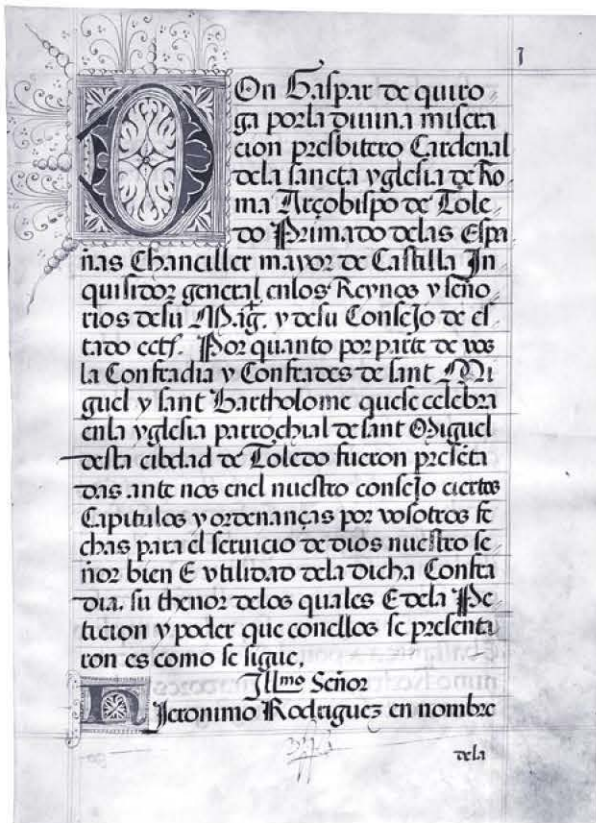 1
DOn Gaspar de quiro
ga por la divina misera
cion presbitero Cardenal
dela sancta yglesia de Ro
ma Arçobispo de Tole
do Primado delas Espa
ñas Chanciller mayor de Castilla In
quisidor general enlos Reynos y seño
rios desu Mag. y desu Consejo de es
tado ectª. Por quanto por parte de vos
la Confradia y Confrades de sant Mi
guel y sant Bartholome quese celebra
enla yglesia parrochial de sant Miguel
desta cibdad de Toledo fueron preseta
das ante nos enel nuestro consejo ciertos
Capitulos y ordenanças por vosotros fe
chas para el servicio de dios nuestro se
ñor bien E utilidad dela dicha Confra
dia, su thenor delos quales E dela Pe
ticion y poder que conellos se presenta
ron es como se sigue.
Illmo Señor
HJeronimo Rodriguez en nombre
dela